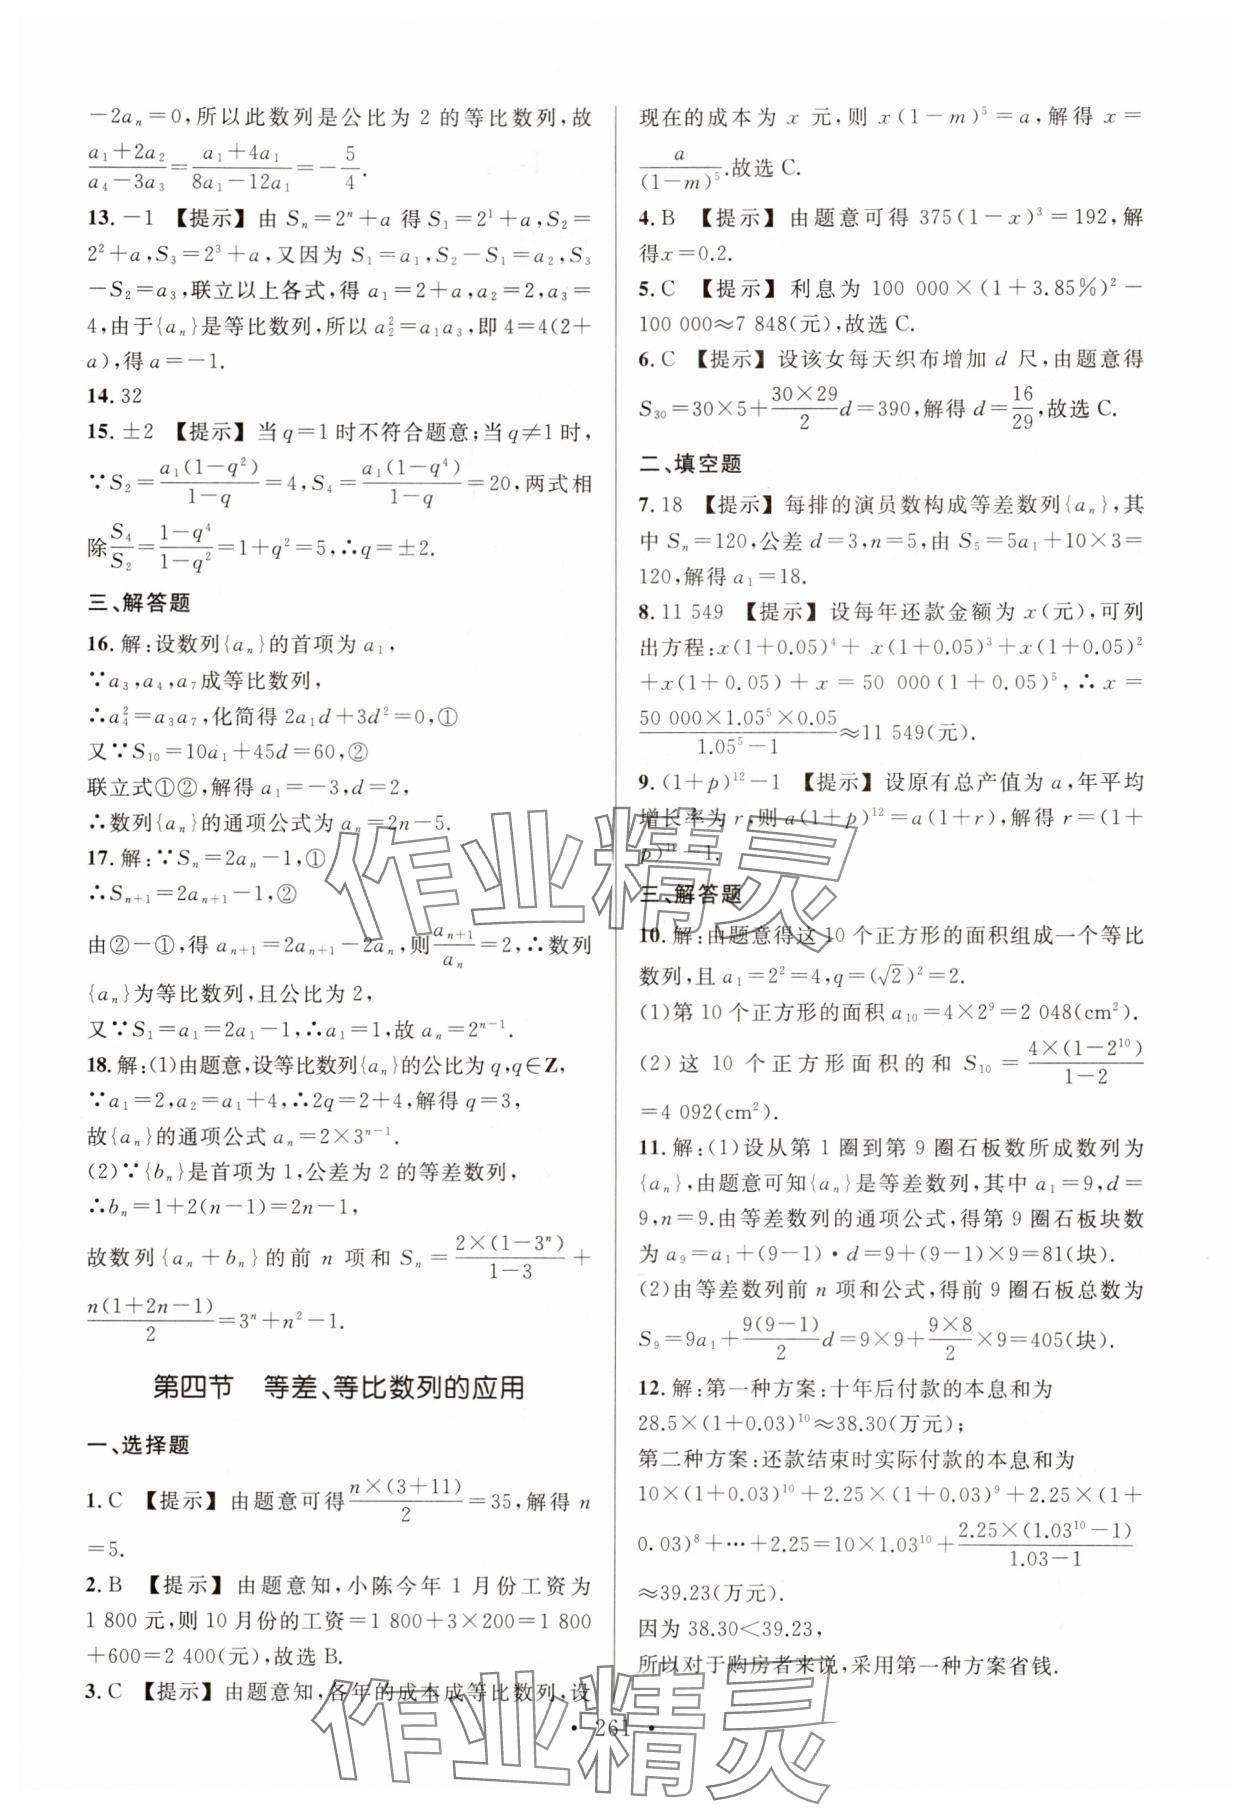 －2aₙ＝0,所以此数列是公比为 2 的等比数列,故
(a₁＋2a₂)/(a₄－3a₃)＝(a₁＋4a₁)/(8a₁－12a₁)＝－5/4.
13.－1 【提示】由 Sₙ＝2ⁿ＋a 得 S₁＝2¹＋a,S₂＝
2²＋a,S₃＝2³＋a,又因为 S₁＝a₁,S₂－S₁＝a₂,S₃
－S₂＝a₃,联立以上各式,得 a₁＝2＋a,a₂＝2,a₃＝
4,由于{aₙ}是等比数列,所以 a₂²＝a₁a₃,即 4＝4(2＋
a),得 a＝－1.
14.32
15.±2 【提示】当 q＝1 时不符合题意;当 q≠1 时,
∵S₂＝a₁(1－q²)/(1－q)＝4,S₄＝a₁(1－q⁴)/(1－q)＝20,两式相
除S₄/S₂＝(1－q⁴)/(1－q²)＝1＋q²＝5,∴q＝±2.
三、解答题
16.解:设数列{aₙ}的首项为 a₁,
∵a₃,a₄,a₇成等比数列,
∴a₄²＝a₃a₇,化简得 2a₁d＋3d²＝0,①
又∵S₁₀＝10a₁＋45d＝60,②
联立式①②,解得 a₁＝－3,d＝2,
∴数列{aₙ}的通项公式为 aₙ＝2n－5.
17.解:∵Sₙ＝2aₙ－1,①
∴Sₙ₊₁＝2aₙ₊₁－1,②
由②－①,得 aₙ₊₁＝2aₙ₊₁－2aₙ,则aₙ₊₁/aₙ＝2,∴数列
{aₙ}为等比数列,且公比为 2,
又∵S₁＝a₁＝2a₁－1,∴a₁＝1,故 aₙ＝2ⁿ⁻¹.
18.解:(1)由题意,设等比数列{aₙ}的公比为 q,q∈Z,
∵a₁＝2,a₂＝a₁＋4,∴2q＝2＋4,解得 q＝3,
故{aₙ}的通项公式 aₙ＝2×3ⁿ⁻¹.
(2)∵{bₙ}是首项为 1,公差为 2 的等差数列,
∴bₙ＝1＋2(n－1)＝2n－1,
故数列{aₙ＋bₙ}的前 n 项和 Sₙ＝2×(1－3ⁿ)/(1－3)＋
n(1＋2n－1)/2＝3ⁿ＋n²－1.
第四节 等差、等比数列的应用
一、选择题
1.C 【提示】由题意可得n×(3＋11)/2＝35,解得 n
＝5.
2.B 【提示】由题意知,小陈今年 1 月份工资为
1 800 元,则 10 月份的工资＝1 800＋3×200＝1 800
＋600＝2 400(元),故选 B.
3.C 【提示】由题意知,各年的成本成等比数列,设
现在的成本为 x 元,则 x(1－m)⁵＝a,解得 x＝
a/(1－m)⁵.故选 C.
4.B 【提示】由题意可得 375(1－x)³＝192,解
得x＝0.2.
5.C 【提示】利息为 100 000×(1＋3.85%)²－
100 000≈7 848(元),故选 C.
6.C 【提示】设该女每天织布增加 d 尺,由题意得
S₃₀＝30×5＋(30×29)/2 d＝390,解得 d＝16/29,故选 C.
二、填空题
7.18 【提示】每排的演员数构成等差数列{aₙ},其
中 Sₙ＝120,公差 d＝3,n＝5,由 S₅＝5a₁＋10×3＝
120,解得 a₁＝18.
8.11 549 【提示】设每年还款金额为 x(元),可列
出方程:x(1＋0.05)⁴＋ x(1＋0.05)³＋x(1＋0.05)²
＋x(1＋0.05)＋x＝50 000(1＋0.05)⁵,∴x＝
(50 000×1.05⁵×0.05)/(1.05⁵－1)≈11 549(元).
9.(1＋p)¹²－1 【提示】设原有总产值为 a,年平均
增长率为 r,则 a(1＋p)¹²＝a(1＋r),解得 r＝(1＋
p)¹²－1.
三、解答题
10.解:由题意得这 10 个正方形的面积组成一个等比
数列,且 a₁＝2²＝4,q＝(√2)²＝2.
(1)第 10 个正方形的面积 a₁₀＝4×2⁹＝2 048(cm²).
(2)这 10 个正方形面积的和 S₁₀＝4×(1－2¹⁰)/(1－2)
＝4 092(cm²).
11.解:(1)设从第 1 圈到第 9 圈石板数所成数列为
{aₙ},由题意可知{aₙ}是等差数列,其中 a₁＝9,d＝
9,n＝9.由等差数列的通项公式,得第 9 圈石板块数
为 a₉＝a₁＋(9－1)·d＝9＋(9－1)×9＝81(块).
(2)由等差数列前 n 项和公式,得前 9 圈石板总数为
S₉＝9a₁＋9(9－1)/2 d＝9×9＋(9×8)/2×9＝405(块).
12.解:第一种方案:十年后付款的本息和为
28.5×(1＋0.03)¹⁰≈38.30(万元);
第二种方案:还款结束时实际付款的本息和为
10×(1＋0.03)¹⁰＋2.25×(1＋0.03)⁹＋2.25×(1＋
0.03)⁸＋…＋2.25＝10×1.03¹⁰＋2.25×(1.03¹⁰－1)/(1.03－1)
≈39.23(万元).
因为 38.30＜39.23,
所以对于购房者来说,采用第一种方案省钱.
作业精灵
作业精灵
• 261 •